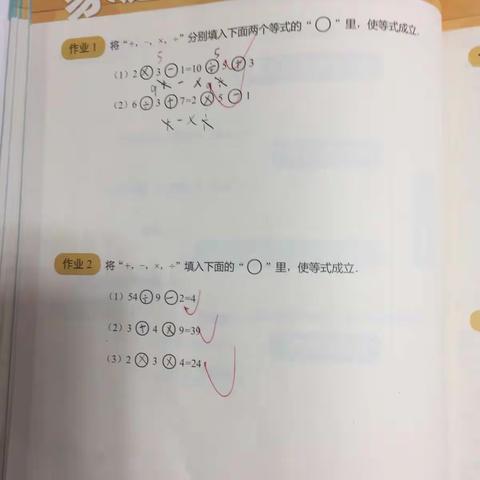 作业1 将“+，-，×，÷”分别填入下面两个等式的“○”里，使等式成立.
5 5
（1）2⊗3⊖1=10⊕5⊕3
+ - × ÷
9 9
（2）6⊕3⊕7=2⊗5⊖1
+ - × ÷
作业2 将“+，-，×，÷”填入下面的“○”里，使等式成立.
（1）54÷9⊖2=4
（2）3⊕4⊗9=39
（3）2⊗3⊗4=24